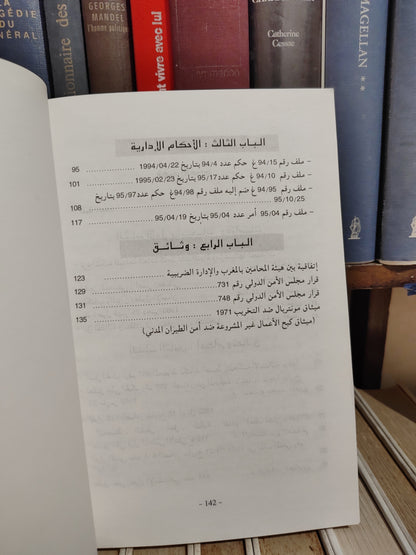 GÉDIE
DU
NÉRAL
onnaire des
GEORGES
MANDEL
l'homme politique
t vivre avec lui
Catherine
Cessac
MAGELLAN
**
الباب الثالث : الأحكام الإدارية
– ملف رقم 94/15 غ حكم عدد 94/4 بتاريخ 1994/04/22 95
– ملف رقم 94/10 غ حكم عدد 95/17 بتاريخ 1995/02/23 101
– ملف رقم 94/95 غ ضم إليه ملف رقم 94/98غ حكم عدد 95/97 بتاريخ
95/10/25 108
– ملف رقم 95/04 أمر عدد 95/04 بتاريخ 95/04/19 117
الباب الرابع : وثائق
إتفاقية بين هيئة المحامين بالمغرب والإدارة الضريبية 123
قرار مجلس الأمن الدولي رقم 731 129
قرار مجلس الأمن الدولي رقم 748 131
ميثاق مونتريال ضد التخريب 1971 135
(ميثاق كبح الأعمال غير المشروعة ضد أمن الطيران المدني)
- 142 -